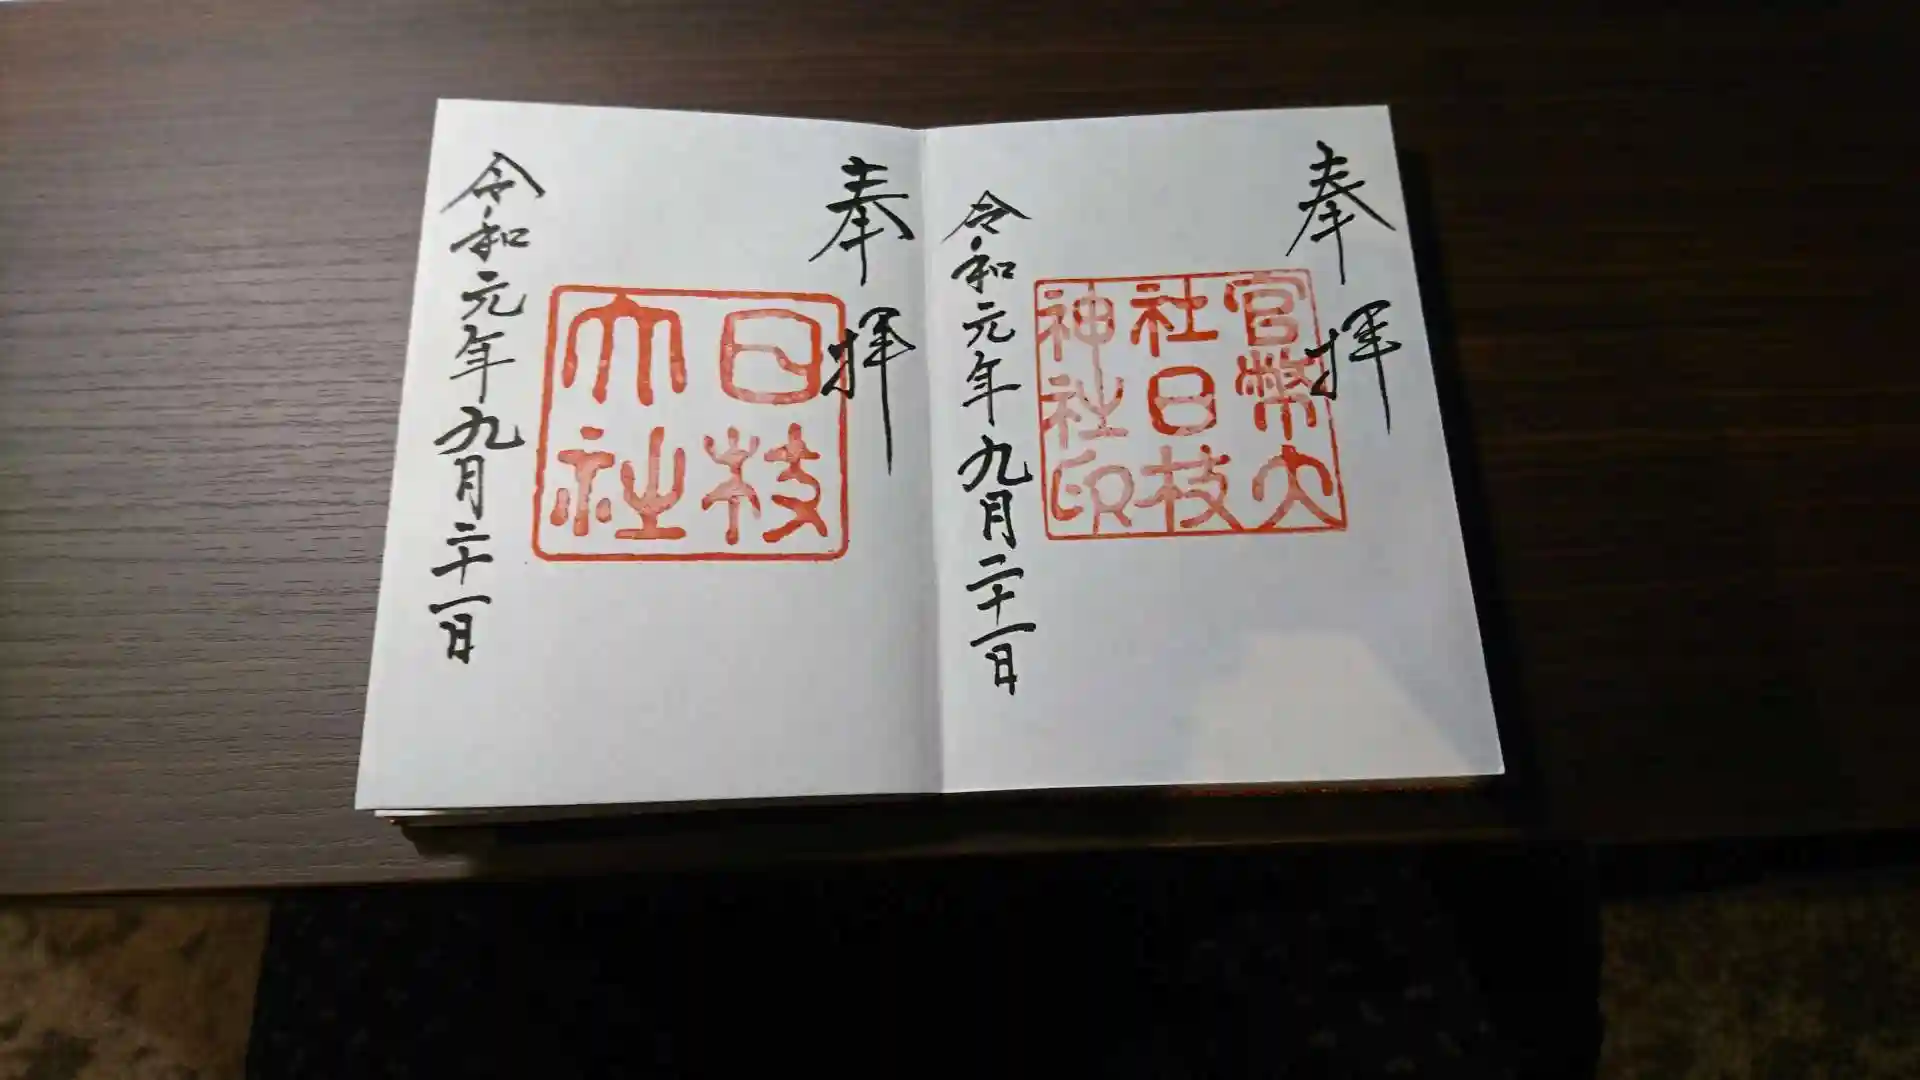 奉拝
官幣大
社日枝
神社印
令和元年九月二十一日
奉拝
日枝
大社
令和元年九月二十一日